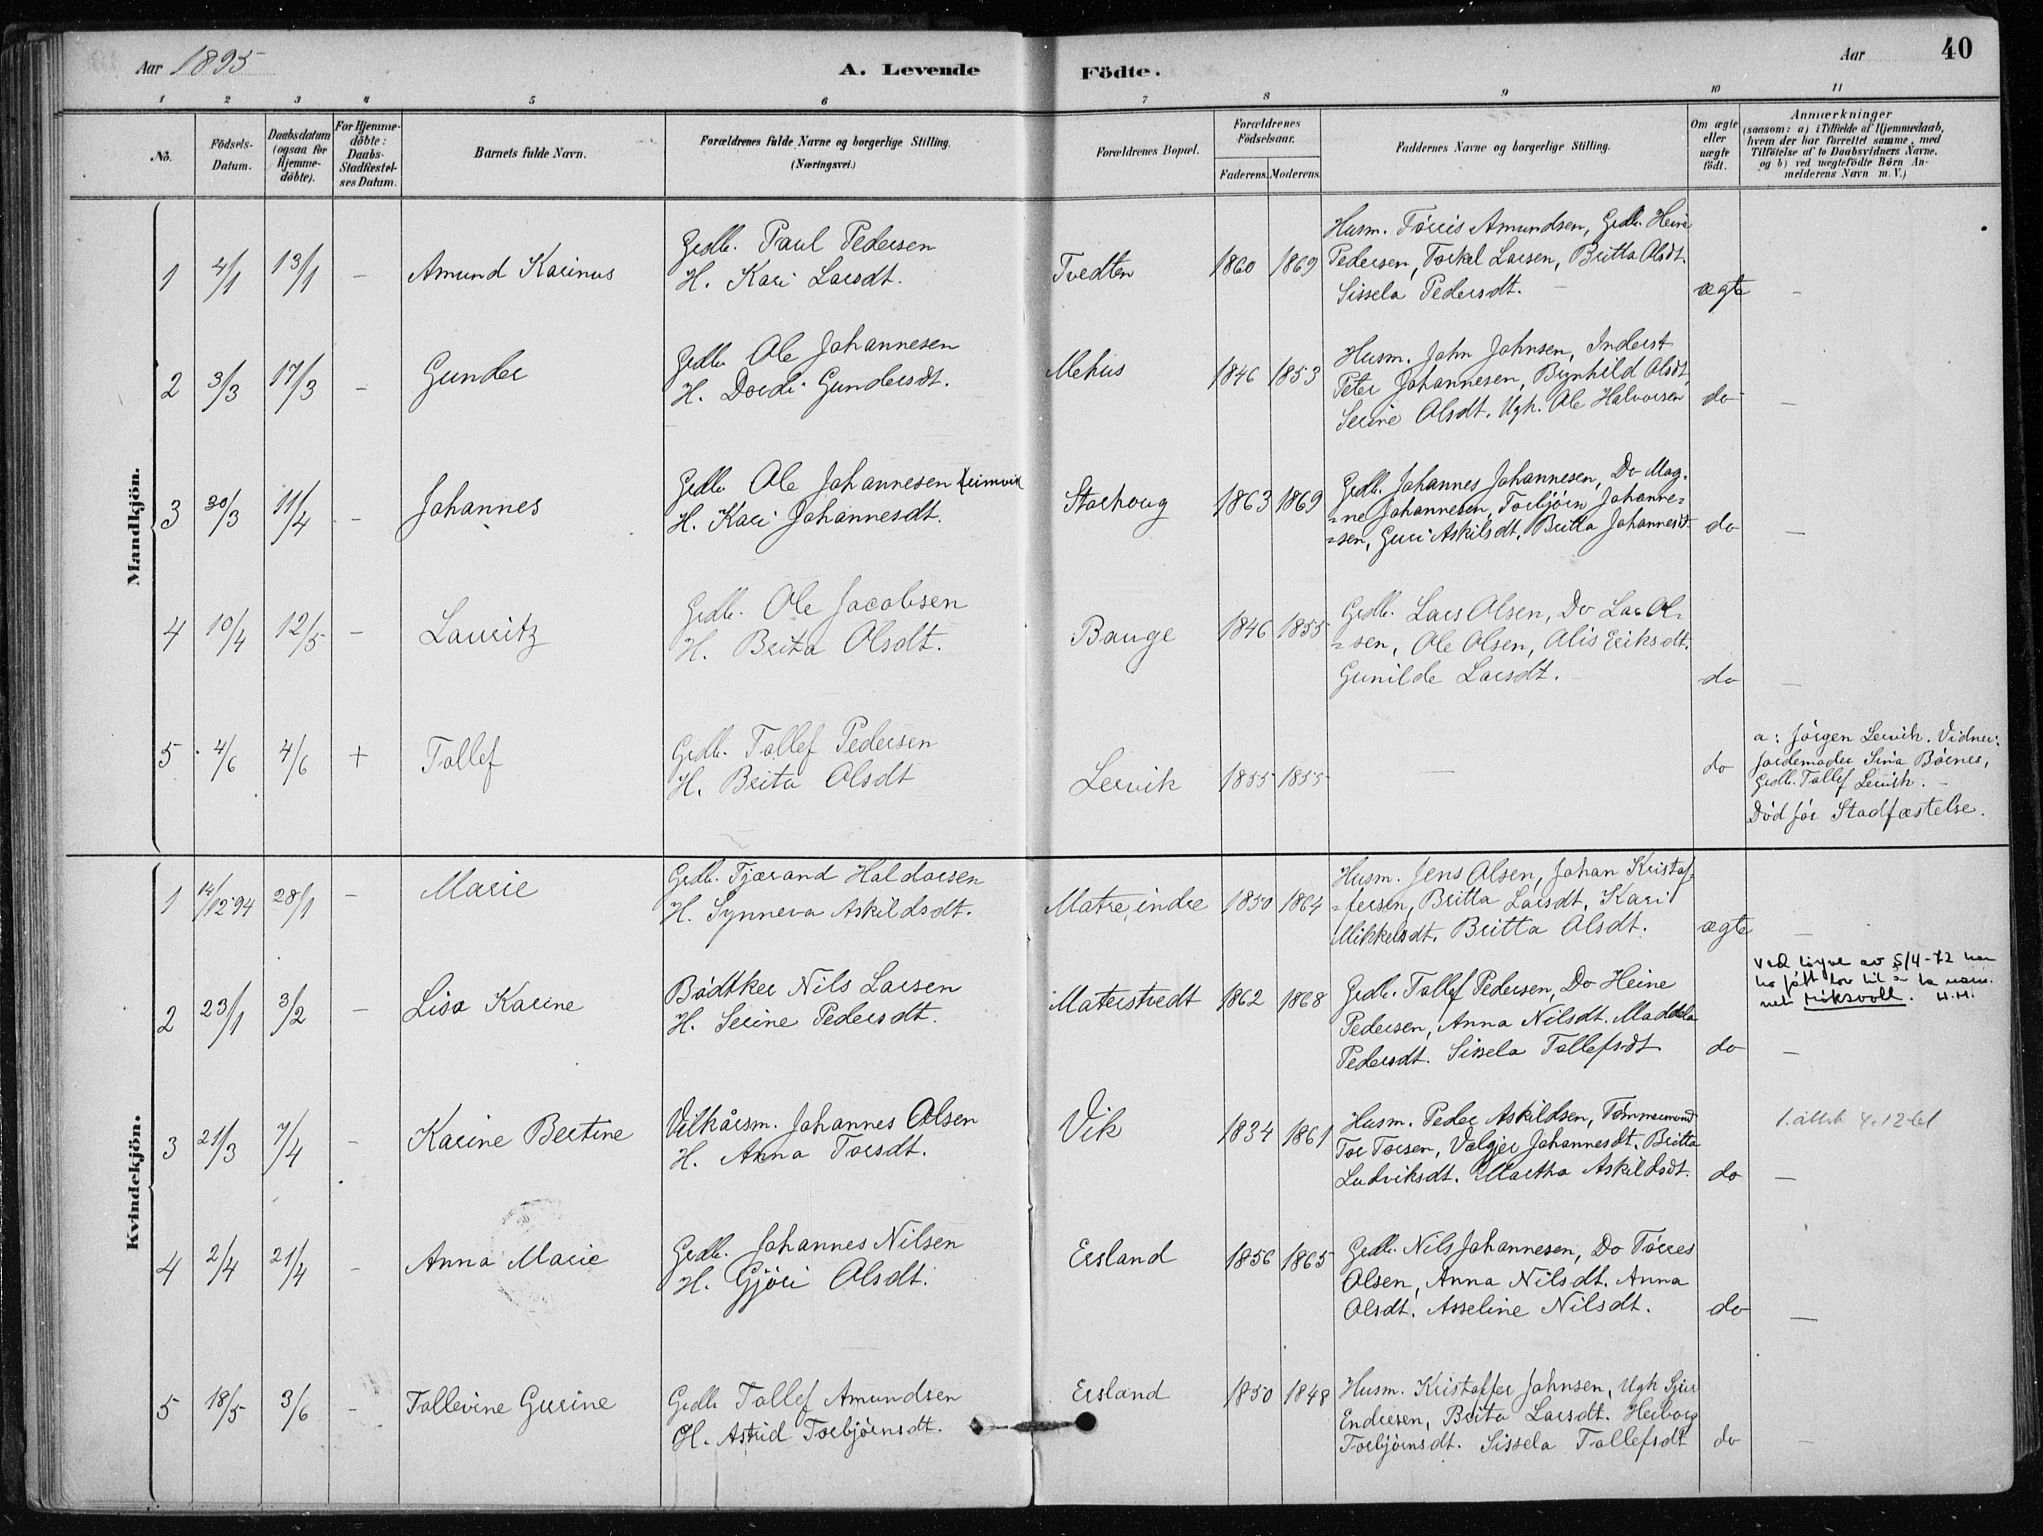 Aar 1895
A. Levende Fødte.
Aar 40
1 2 3 4 5 6 7 8 9 10 11
No.
Fødsels-Datum.
Daabsdatum (ogsaa for Hjemme-døbte).
For Hjemme-døbte: Daabs-Stadfæstel-ses Datum.
Barnets fulde Navn.
Forældrenes fulde Navne og borgerlige Stilling.
(Næringsvei.)
Forældrenes Bopæl.
Forældrenes Fødselsaar.
Faderens. Moderens.
Faddernes Navne og borgerlige Stilling.
Om ægte eller uægte født.
Anmærkninger
(saasom: a) i Tilfælde af Hjemmedaab,
hvem der har forrettet samme, med
Tilføielse af to Daabsvidners Navne,
og b) ved uægtefødte Børn An-
melderens Navn m. V.)
Mandkjøn.
1 4/1 13/1 – Amund Karinus
Grdb. Paul Pedersen
H. Kari Larsdt.
Tvedten 1860 1869
Husm. Tørris Amundsen, Grdb. Heine
Pedersen, Torkel Larsen, Britta Olsdt.
Sissela Pedersdt. –
ægte –
2 3/3 17/3 – Gunder
Grdb. Ole Johannesen
H. Dordi Gundersdt.
Mehus 1846 1853
Husm. John Johnsen, Inderst
Peter Johannesen, Brynhild Olsdt,
Serine Olsdt. Ugk. Ole Halvorsen
do –
3 30/3 11/4 – Johannes
Grdb. Ole Johannesen
H. Kari Johannesdt.
Storhoug 1863 1869
Grdb. Johannes Johannesen, Do Mag-
=ne Johannesen, Torbjørn Johanne=
=sen, Guri Askilsdt, Britta Johannesdt
do –
4 10/4 12/5 – Lauritz
Grdb. Ole Jacobsen
H. Brita Olsdt.
Bauge 1846 1855
Grdb. Lars Olsen, Do Lar Ol-
=sen, Ole Olsen, Alis Eriksdt.
Gunilde Larsdt. –
do –
5 4/6 4/6 + Tollef
Grdb. Tollef Pedersen
H. Brita Olsdt
Lervik 1855 1855
–
do
a: Jørgen Lervik. Vidner:
Jordemoder Sina Børnes,
Grdb. Tollef Lervik. –
Død før Stadfæstelse.
Kvindekjøn.
1 14/12 94 28/1 – Marie
Grdb. Tjærand Haldorsen
H. Synneva Askildsdt.
Matre, indre 1850 1864
Husm. Jens Olsen, Johan Kristof-
=fersen, Britta Larsdt, Kari
Mikkelsdt, Britta Olsdt.
ægte –
2 23/1 3/2 – Lisa Karine
Bødtker Nils Larsen
H. Serine Pedersdt.
Materstvedt 1862 1868
Grdb. Tollef Pedersen, Do Heine
Pedersen, Anna Nilsdt. Maddela
Pedersdt. Sissela Tollefsdt.
do –
Ved løyve av 5/4-72 har
ho fått lov til å ta nam-
net Miksvoll. H.H.
3 21/3 7/4 – Karine Bertine
Vilkårsm. Johannes Olsen
H. Anna Torsdt.
Vik 1834 1861
Husm. Peder Askildsen, Tømmermand
Tor Torsen, Valgjer Johannesdt, Britta
Ludviksdt. Martha Askildsdt.
do –
1. attest 4.12-61
4 2/4 21/4 – Anna Marie
Grdb. Johannes Nilsen
H. Gjøri Olsdt.
Ersland 1856 1865
Grdb. Nils Johannesen, Do Tørres
Olsen, Anna Nilsdt. Anna
Olsdt, Asseline Nilsdt.
do –
5 18/5 3/6 – Tollevine Gurine
Grdb. Tollef Amundsen
H. Astrid Torbjørnsdt.
Ersland 1850 1848
Husm. Kristoffer Johnsen, Ugk Sjur
Endresen, Brita Larsdt. Herborg
Torbjørnsdt. Sissela Tollefsdt
do –